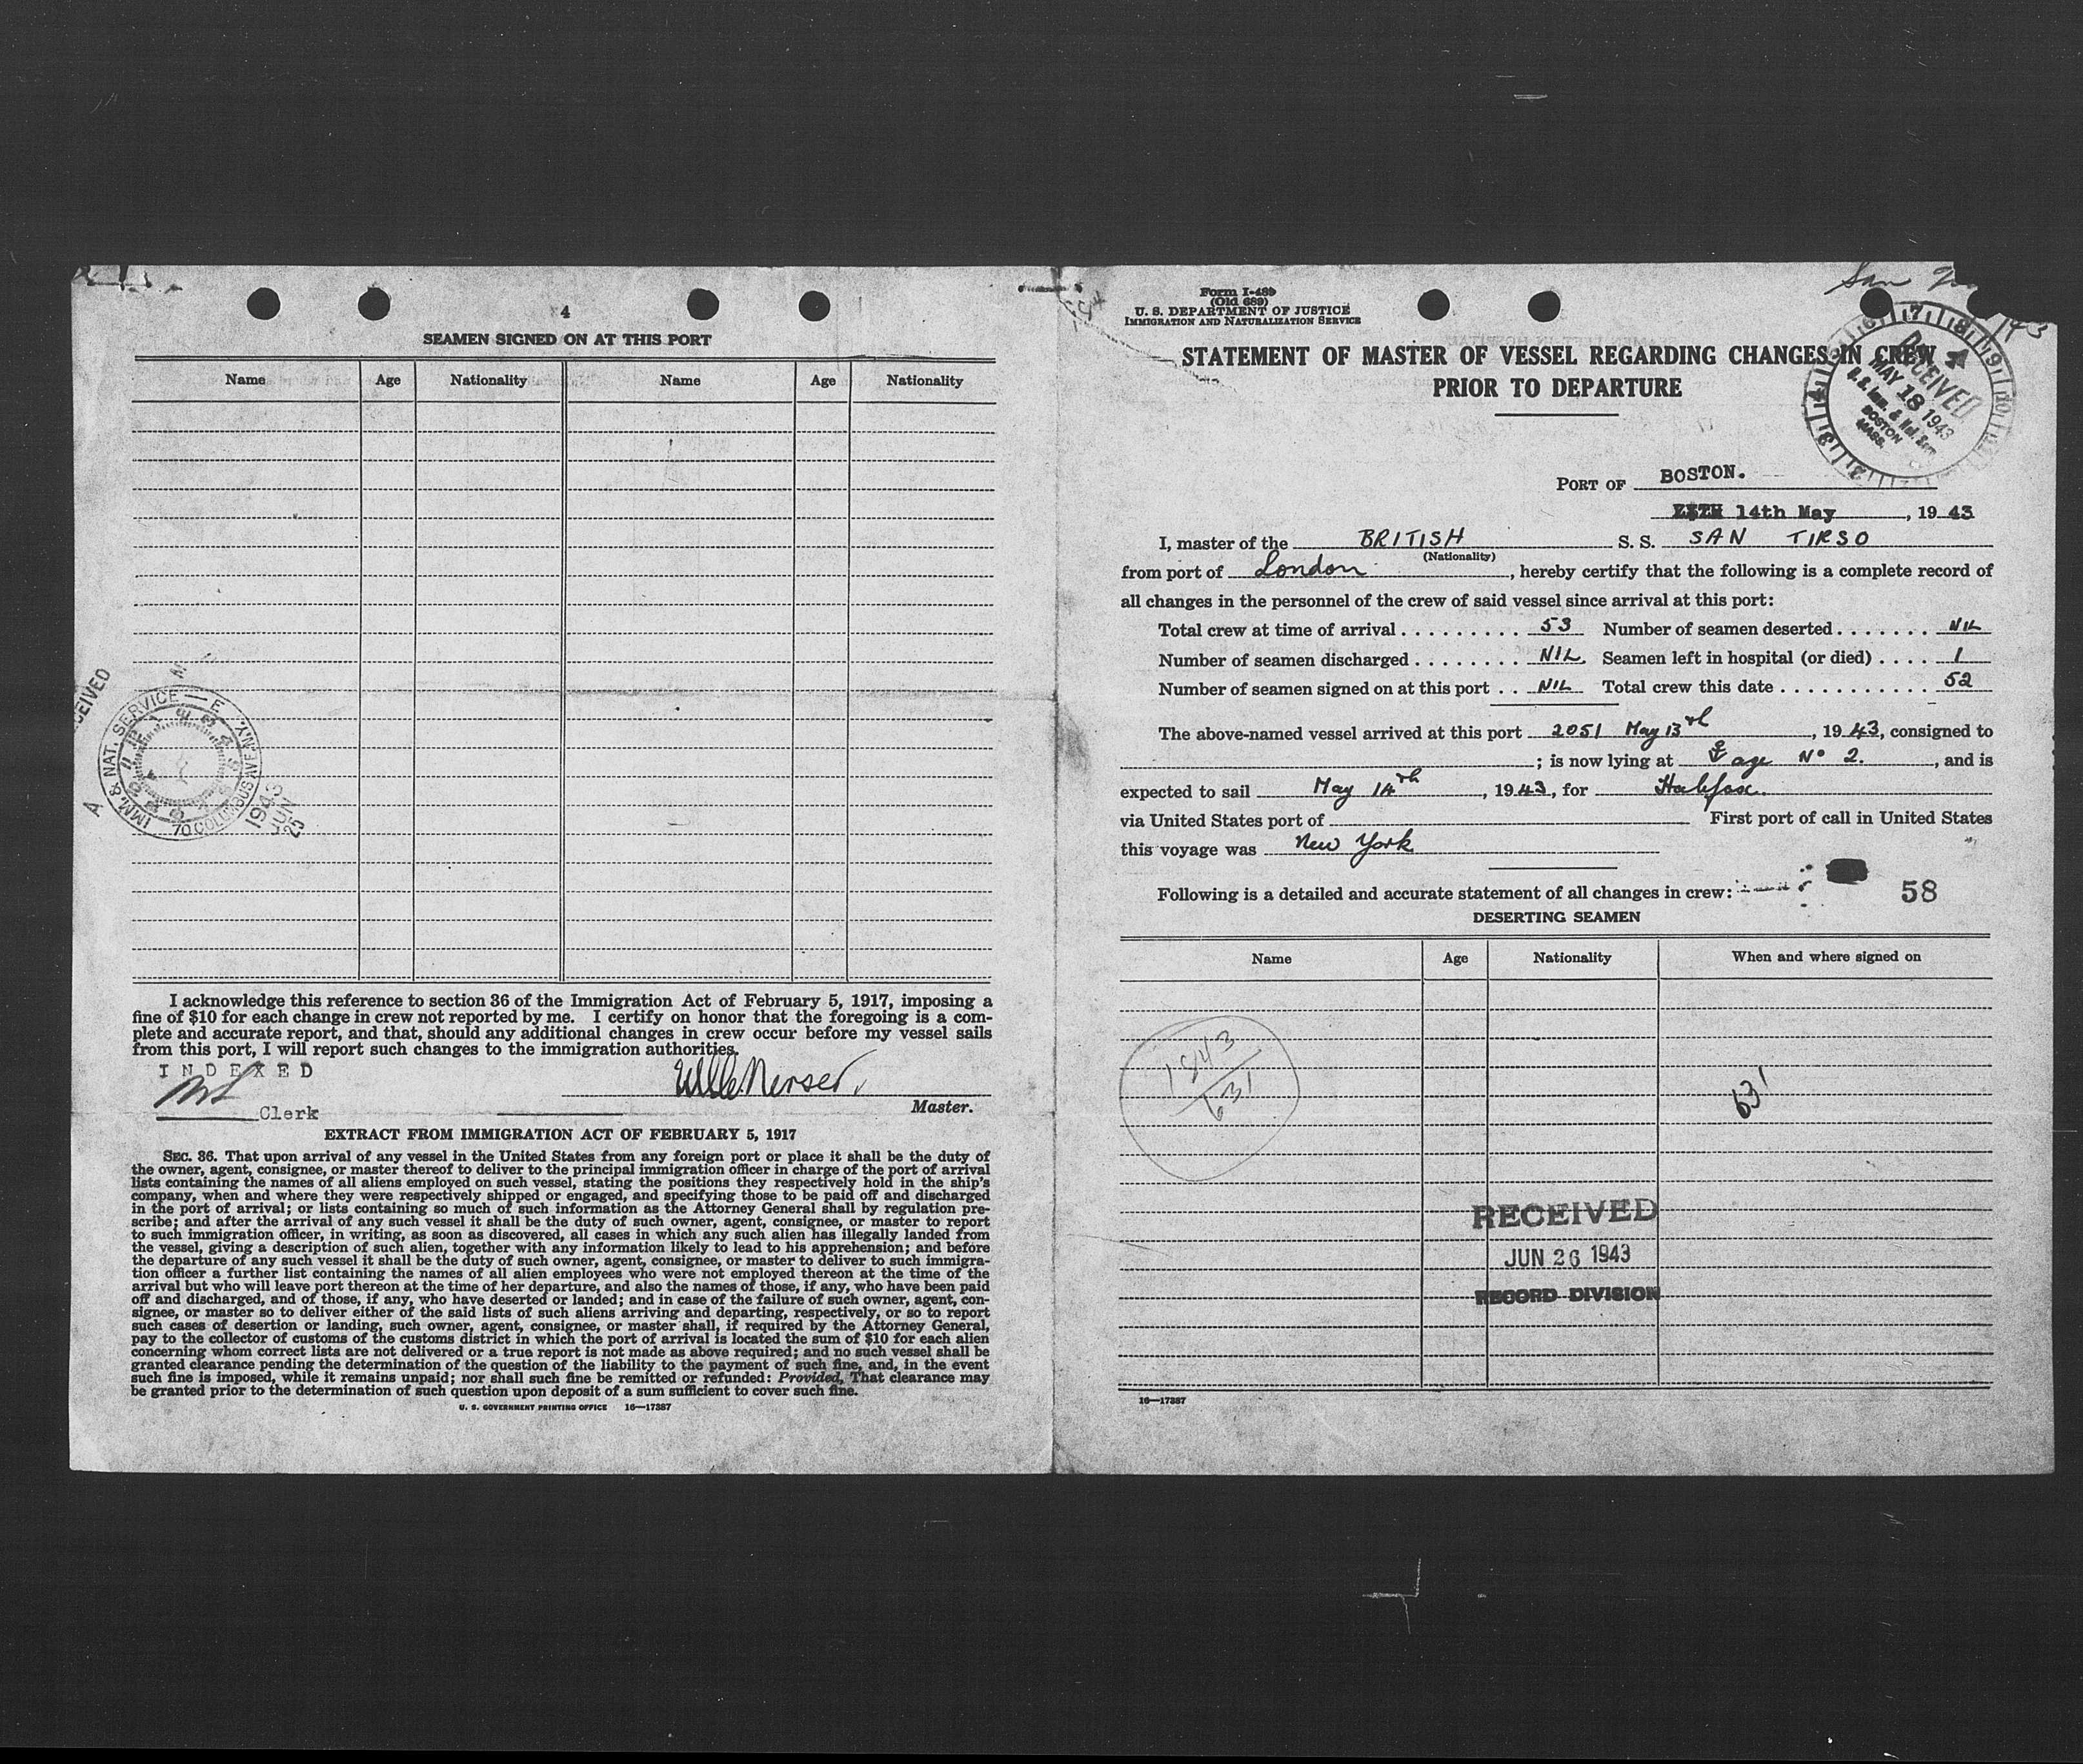 4
SEAMEN SIGNED ON AT THIS PORT
Name Age Nationality Name Age Nationality
RECEIVED
IMM. & NAT. SERVICE
70 COLUMBUS AVE. N.Y.
1943
JUN
25
I acknowledge this reference to section 36 of the Immigration Act of February 5, 1917, imposing a
fine of $10 for each change in crew not reported by me. I certify on honor that the foregoing is a com-
plete and accurate report, and that, should any additional changes in crew occur before my vessel sails
from this port, I will report such changes to the immigration authorities.
INDEXED
Clerk
Master.
EXTRACT FROM IMMIGRATION ACT OF FEBRUARY 5, 1917
SEC. 36. That upon arrival of any vessel in the United States from any foreign port or place it shall be the duty of
the owner, agent, consignee, or master thereof to deliver to the principal immigration officer in charge of the port of arrival
lists containing the names of all aliens employed on such vessel, stating the positions they respectively hold in the ship's
company, when and where they were respectively shipped or engaged, and specifying those to be paid off and discharged
in the port of arrival; or lists containing so much of such information as the Attorney General shall by regulation pre-
scribe; and after the arrival of any such vessel it shall be the duty of such owner, agent, consignee, or master to report
to such immigration officer, in writing, as soon as discovered, all cases in which any such alien has illegally landed from
the vessel, giving a description of such alien, together with any information likely to lead to his apprehension; and before
the departure of any such vessel it shall be the duty of such owner, agent, consignee, or master to deliver to such immigra-
tion officer a further list containing the names of all alien employees who were not employed thereon at the time of the
arrival but who will leave port thereon at the time of her departure, and also the names of those, if any, who have been paid
off and discharged, and of those, if any, who have deserted or landed; and in case of the failure of such owner, agent, con-
signee, or master so to deliver either of the said lists of such aliens arriving and departing, respectively, or so to report
such cases of desertion or landing, such owner, agent, consignee, or master shall, if required by the Attorney General,
pay to the collector of customs of the customs district in which the port of arrival is located the sum of $10 for each alien
concerning whom correct lists are not delivered or a true report is not made as above required; and no such vessel shall be
granted clearance pending the determination of the question of the liability to the payment of such fine, and, in the event
such fine is imposed, while it remains unpaid; nor shall such fine be remitted or refunded: Provided, That clearance may
be granted prior to the determination of such question upon deposit of a sum sufficient to cover such fine.
U. S. GOVERNMENT PRINTING OFFICE 16—17387
Form I-489
(Old 689)
U. S. DEPARTMENT OF JUSTICE
IMMIGRATION AND NATURALIZATION SERVICE
San
STATEMENT OF MASTER OF VESSEL REGARDING CHANGES IN CREW
PRIOR TO DEPARTURE
RECEIVED
MAY 18 1943
U. S. Imm. & Nat. Serv.
BOSTON
MASS.
PORT OF BOSTON.
14th May, 1943
I, master of the BRITISH S. S. SAN TIRSO
(Nationality)
from port of London, hereby certify that the following is a complete record of
all changes in the personnel of the crew of said vessel since arrival at this port:
Total crew at time of arrival . . . . . . . . . 53 Number of seamen deserted . . . . . . . NIL
Number of seamen discharged . . . . . . . . NIL. Seamen left in hospital (or died) . . . . 1
Number of seamen signed on at this port . . NIL Total crew this date . . . . . . . . . . . . 52
The above-named vessel arrived at this port 2051 May 13rd, 1943, consigned to
; is now lying at No 2., and is
expected to sail May 14th, 1943, for Halifax.
via United States port of First port of call in United States
this voyage was New York
Following is a detailed and accurate statement of all changes in crew:
58
DESERTING SEAMEN
Name Age Nationality When and where signed on
1843
631
631
RECEIVED
JUN 26 1943
RECORD DIVISION
16—17387